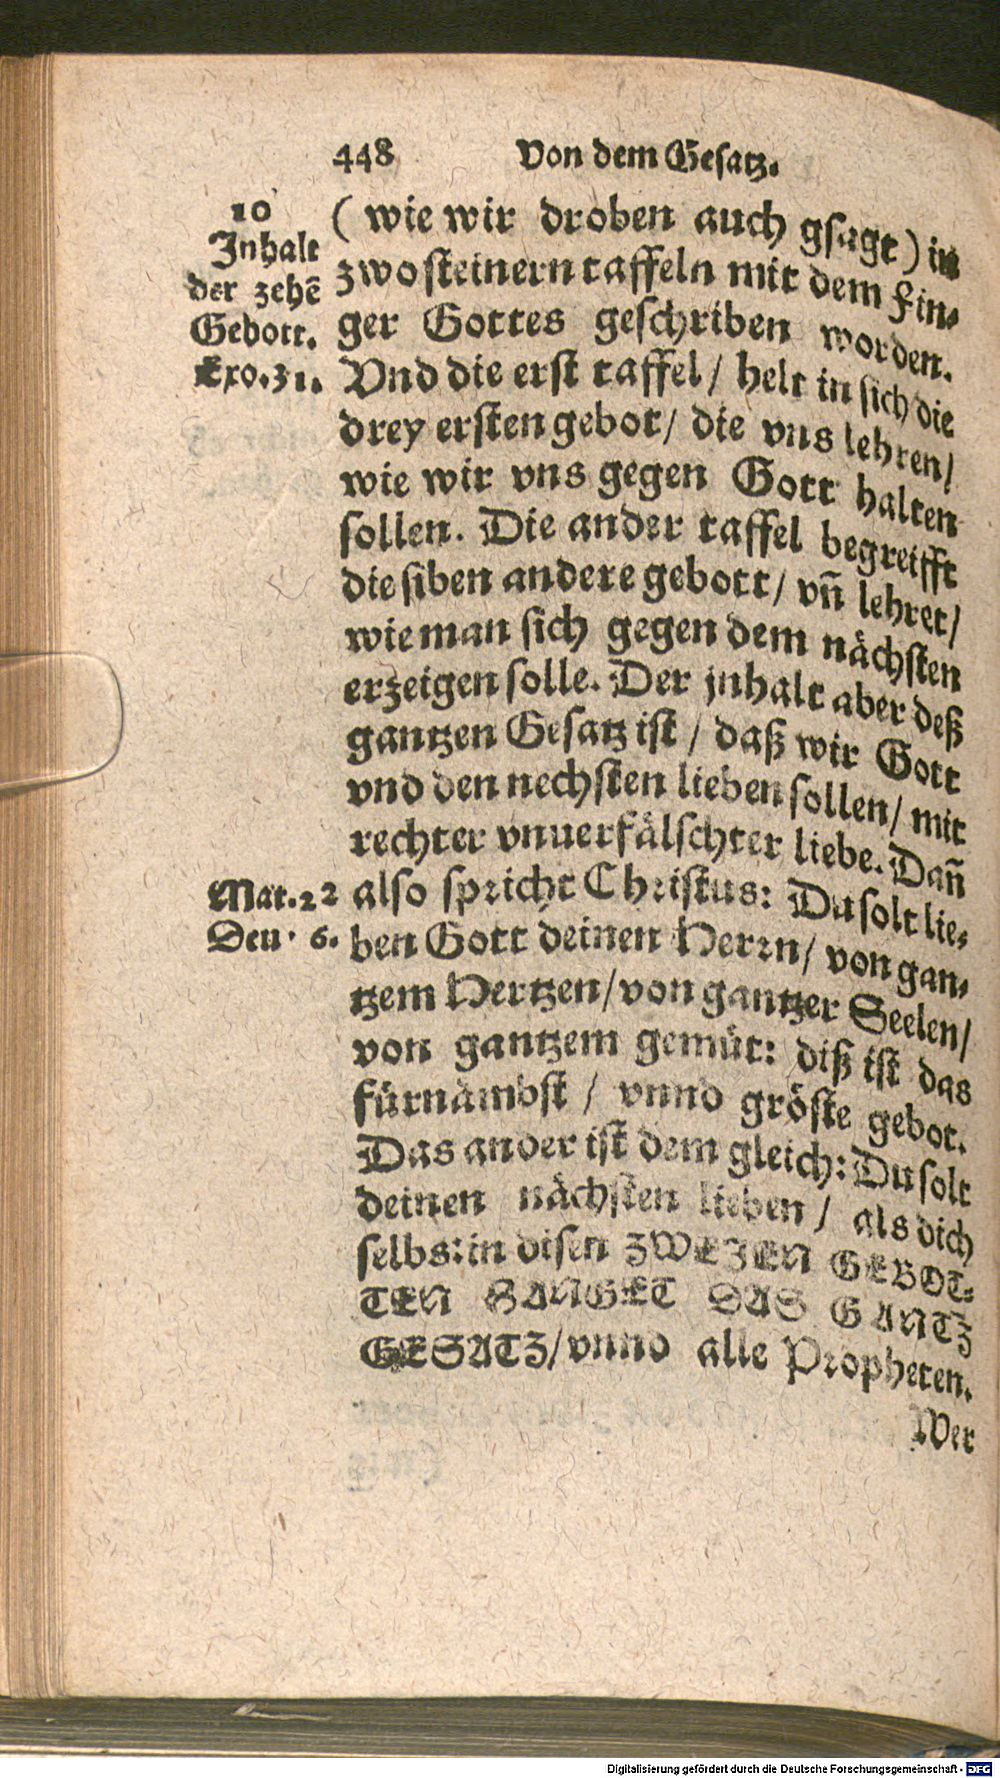 448 Von dem Gesatz.
10
Inhalt
der zehẽ
Gebott.
Exo. 31.
( wie wir droben auch gsagt ) in
zwo steinern taffeln mit dem Fin-
ger Gottes geschriben worden.
Vnd die erst taffel / helt in sich die
drey ersten gebot / die vns lehren /
wie wir vns gegen Gott halten
sollen. Die ander taffel begreifft
die siben andere gebott / vñ lehret /
wie man sich gegen dem nächsten
erzeigen solle. Der jnhalt aber deß
gantzen Gesatz ist / daß wir Gott
vnd den nechsten lieben sollen / mit
rechter vnuerfälschter liebe. Dañ
Mat. 22
Deu. 6.
also spricht Christus: Du solt lie-
ben Gott deinen Herrn / von gan-
tzem Hertzen / von gantzer Seelen /
von gantzem gemüt: diß ist das
fürnämbst / vnnd gröste gebot.
Das ander ist dem gleich: Du solt
deinen nächsten lieben / als dich
selbs: in disen ZWEIEN GEBOT-
TEN HANGET DAS GANTZ
GESATZ / vnnd alle Propheten.
Wer
Digitalisierung gefördert durch die Deutsche Forschungsgemeinschaft - DFG